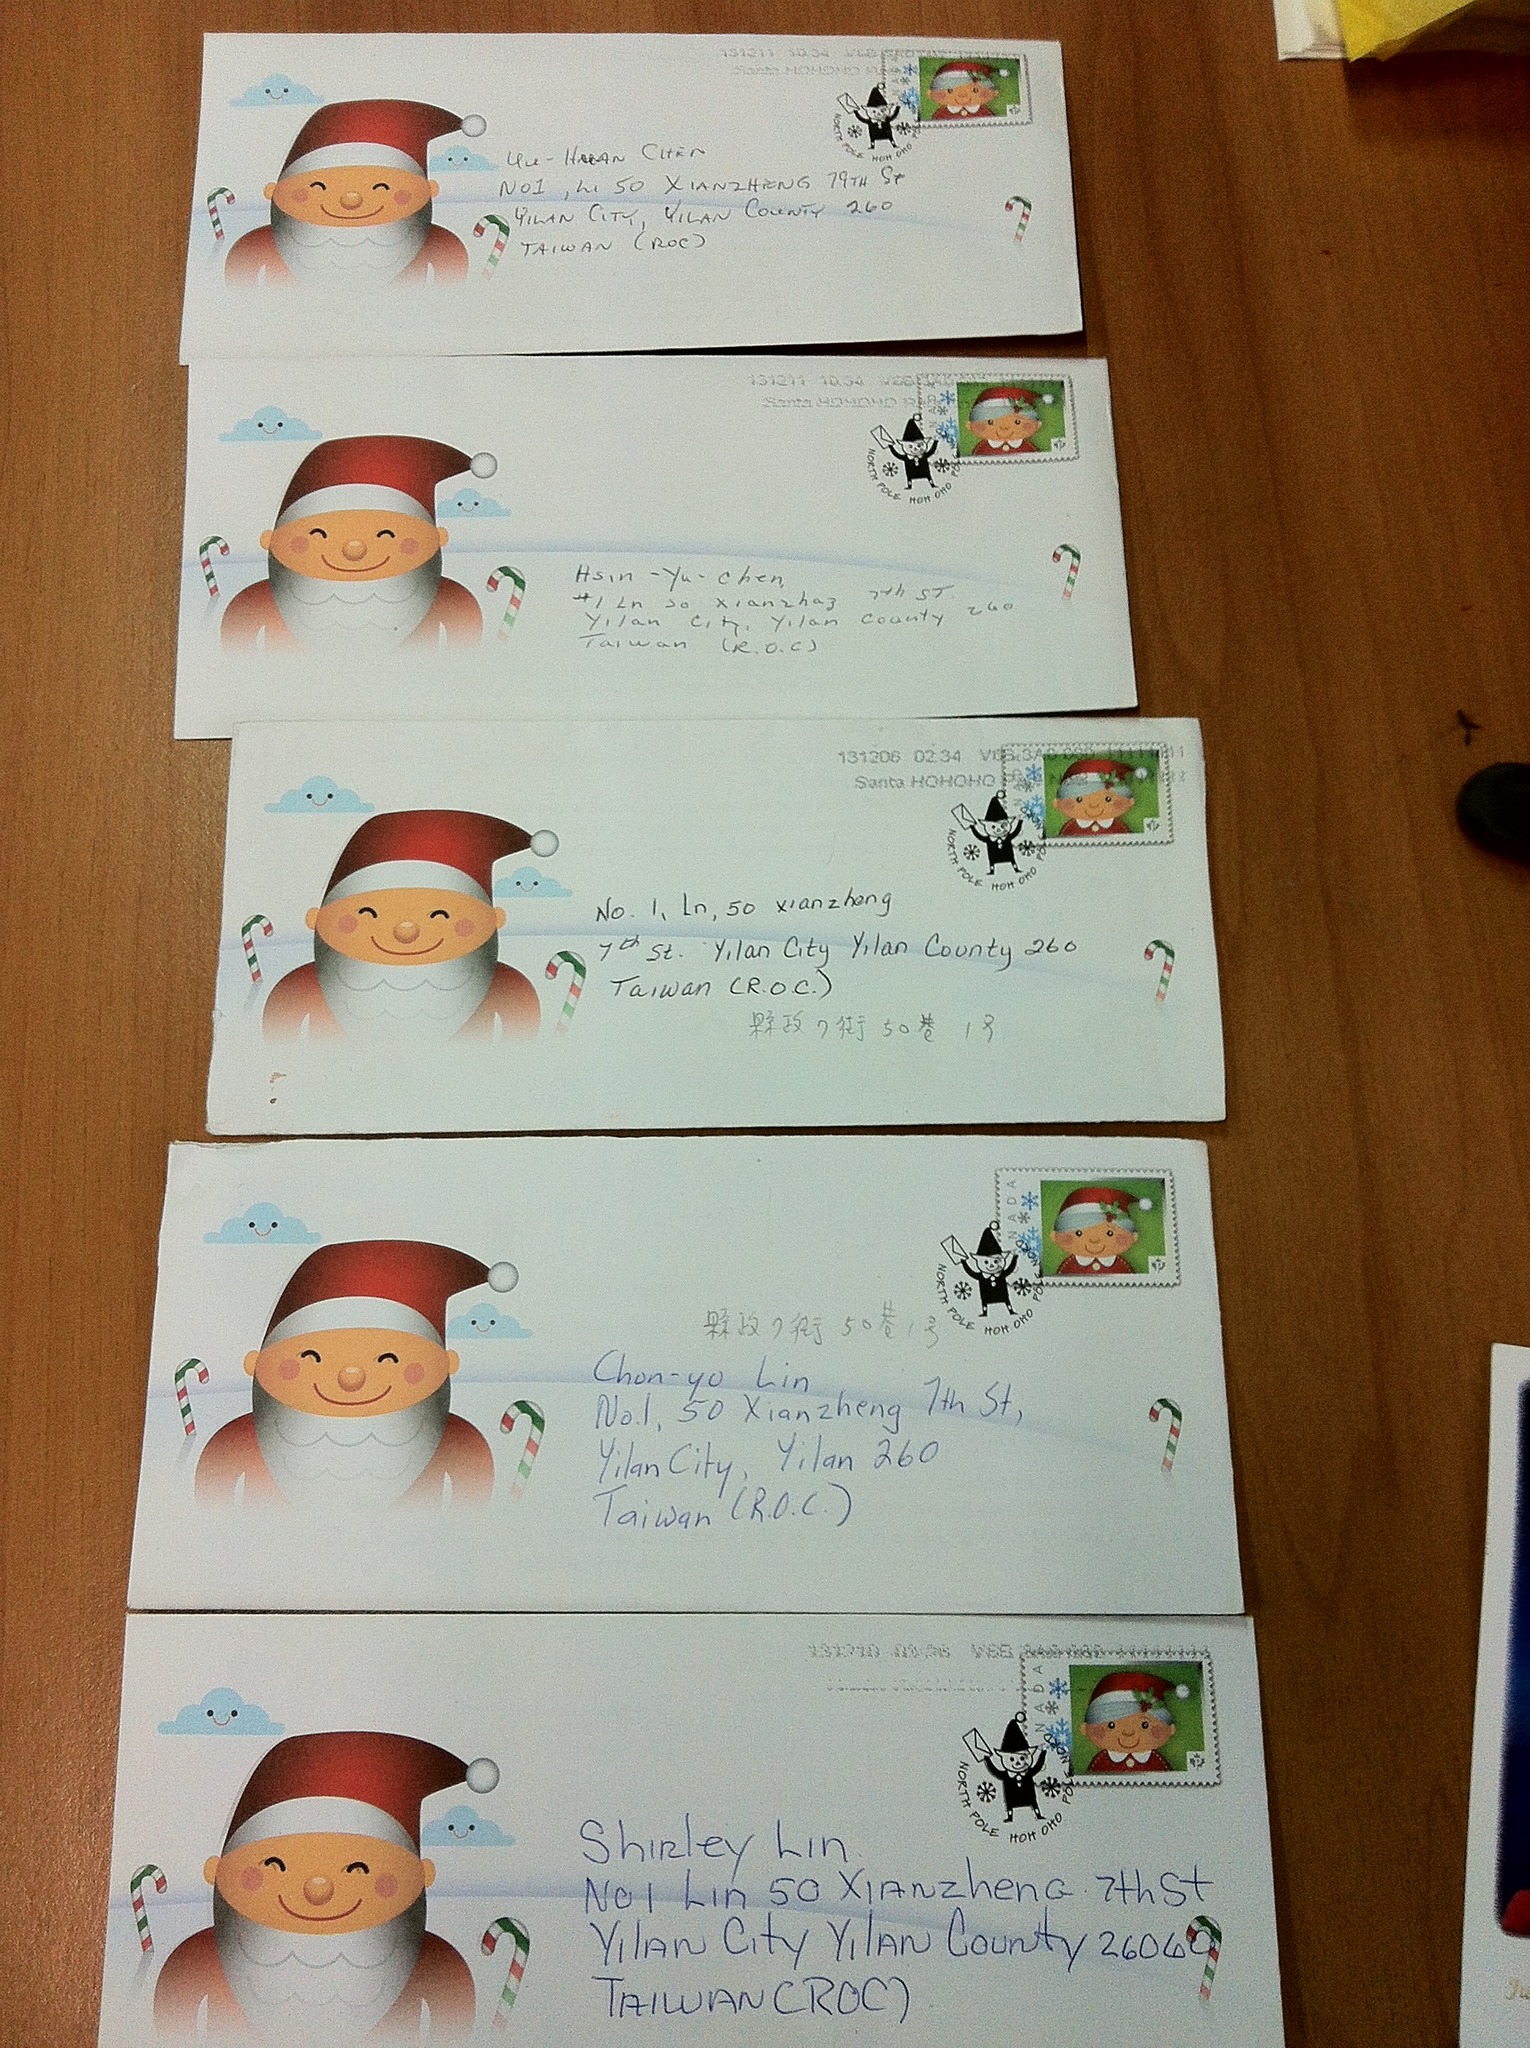 131211 10:34
Santa HOHOHO
NORTH POLE HOH OHO
Yu-HUAN CHEN
NO1, Ln 50 XIANZHENG 79TH St
YILAN CITY, YILAN COUNTY 260
TAIWAN (ROC)
131211 10:34
Santa HOHOHO
NORTH POLE HOH OHO
Hsin-Yu-Chen
#1 Ln 50 Xianzhag 7th ST.
Yilan City, Yilan County 260
Taiwan (R.O.C)
131206 02:34
Santa HOHOHO
NORTH POLE HOH OHO
No. 1, Ln, 50 Xianzheng
7th St. Yilan City Yilan County 260
Taiwan (R.O.C.)
縣政7街50巷1号
CANADA
NORTH POLE HOH OHO
縣政7街50巷1号
Chon-yo Lin
No.1, 50 Xianzheng 7th St,
Yilan City, Yilan 260
Taiwan (R.O.C.)
CANADA
NORTH POLE HOH OHO
Shirley Lin
No1 Lin 50 XIANzheng 7th St
YilAN City YilAN County 26060
TAIWAN (ROC)